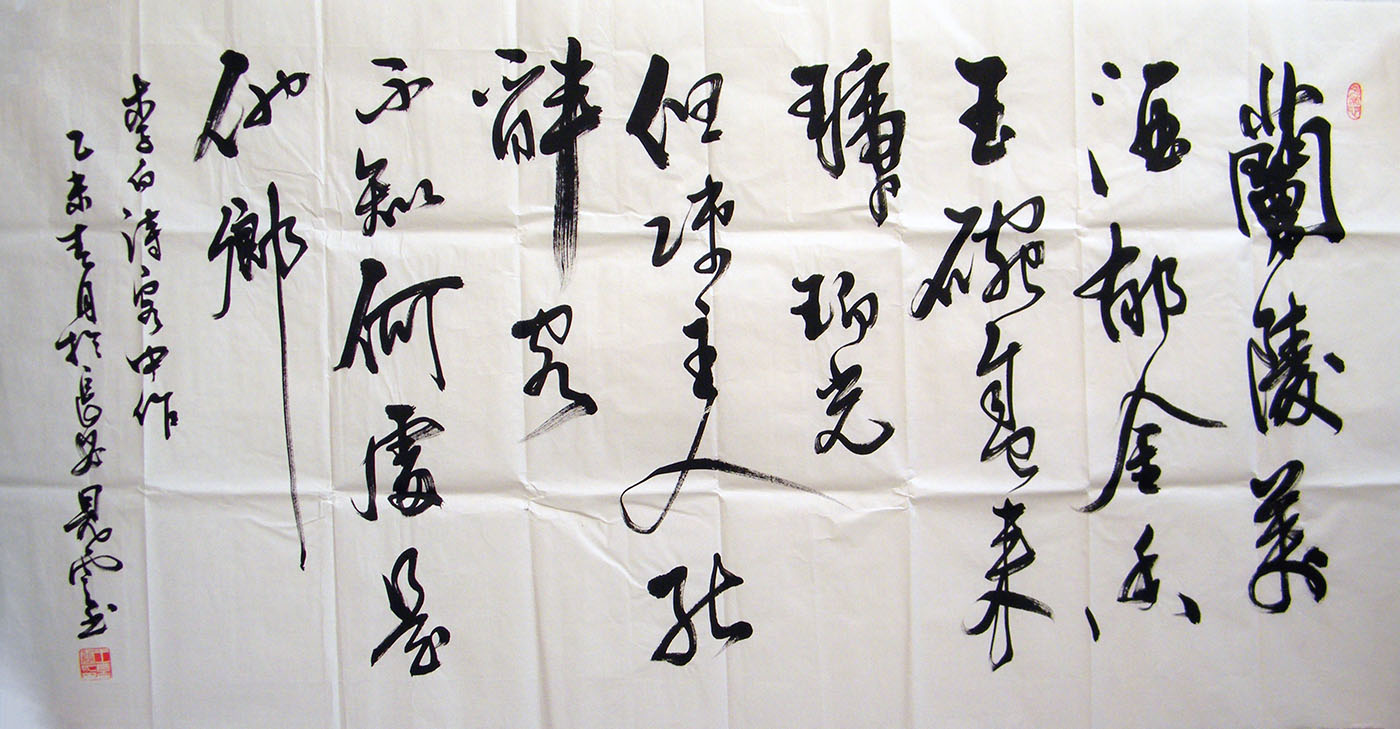 蘭陵美
酒郁金香
玉碗盛来
琥珀光
但使主人能
醉客
不知何處是
他鄉
李白诗客中作
乙未春月於長安雲书